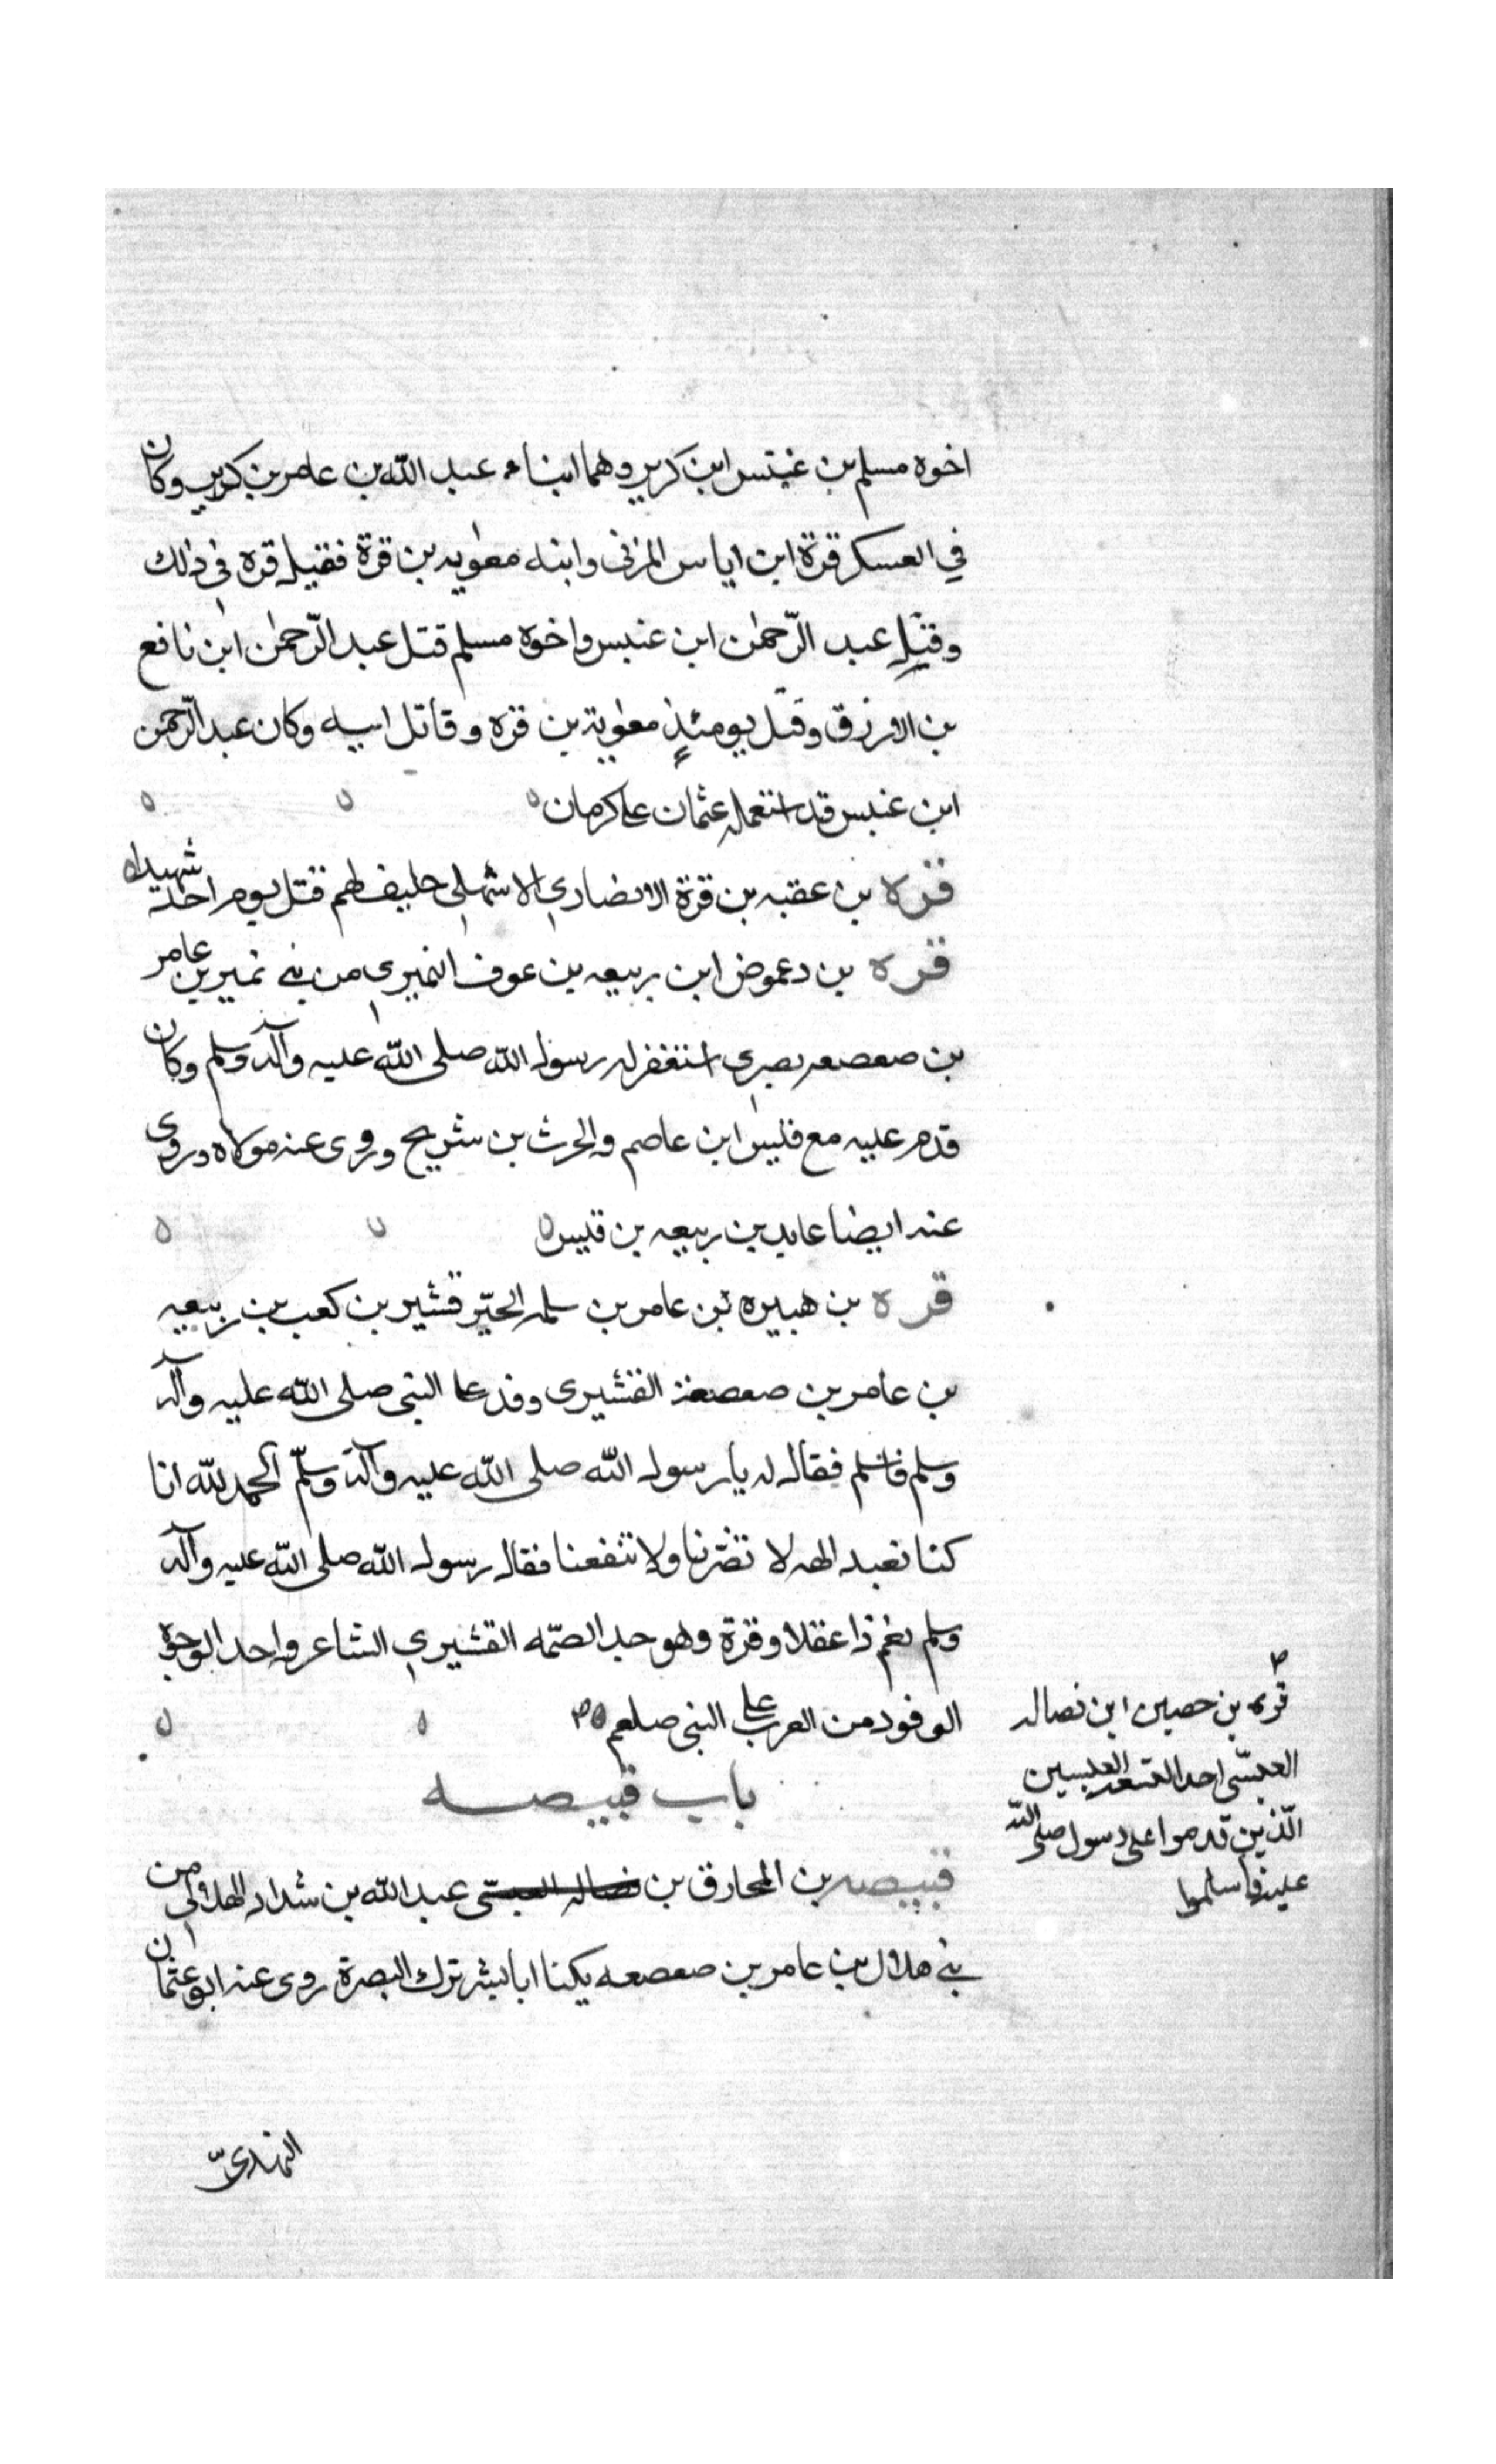 اخوه مسلم بن غبتس ابن كريز وهما ابناء عبد الله بن عامر بن كريز وكان
في العسكر قرة ابن اياس المزنى وابنه معوية بن قرة فقتل قرة فى ذلك
وقتل عبد الرّحمٰن ابن عنبس واخوه مسلم قتل عبد الرّحمٰن ابن نافع
بن الازرق وقتل يومئذٍ معوية بن قره وقاتل ابيه وكان عبد الرّحمن
ابن عنبس قد استعمله عثمان على كرمان
قره بن عقبه بن قرة الانصاري الاشهلى حليف لهم قتل يوم احد شهيدا
قره بن دعموض ابن ربيعه بن عوف النميرى من بنى نمير بن عامر
بن صعصعه بصرى استغفر له رسول الله صلى الله عليه وآله وسلم وكان
قدم عليه مع قليس ابن عاصم والحرث بن شريح وروى عنه مولاه وروى
عنه ايضا عايد بن ربيعه بن قيس
قره بن هبيره بن عامر بن سلمه الخيّر قشير بن كعب بن ربيعه
بن عامر بن صعصعة القشيرى وفد على النبى صلى الله عليه وآله
وسلم فاسلم فقال له يا رسول الله صلى الله عليه وآله وسلّم الحمد لله انا
كنا نعبد الهه لا تضرنا ولا تنفعنا فقال رسول الله صلى الله عليه وآله
وسلم نعم ذا عقلا وقرة وهو جد الصّمه القشيري الشاعر واحد الوجوه
الوفود من العرب على النبى صلعم
قره بن حصين ابن فضاله
العبسّى احد التسعه العبسين
الّذين قدموا على رسول الله صلى
عليه فاسلموا
باب قبيصه
قبيصه بن المخارق بن فضاله العبسّى عبد الله بن شداد الهلالى من
بنى هلال بن عامر بن صعصعه يكنا ابا بشر ترك البصرة روى عنه ابو عثمان
النهدىّ